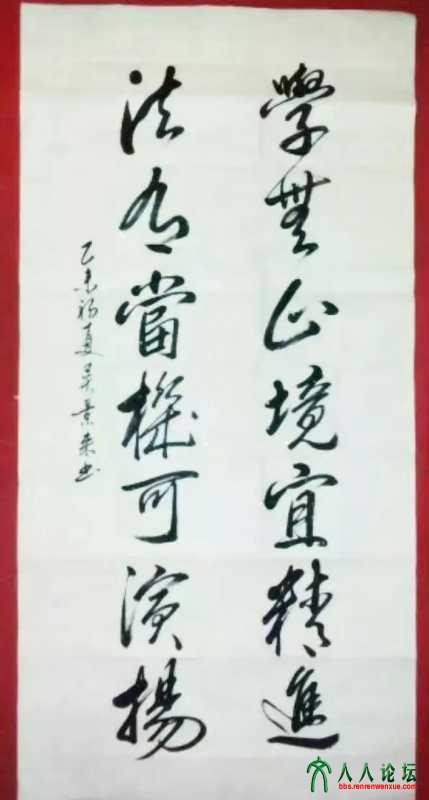 學無止境宜精進
法有當機可演揚
乙未初夏吴景来书
人人论坛
bbs.renrenwenxue.com